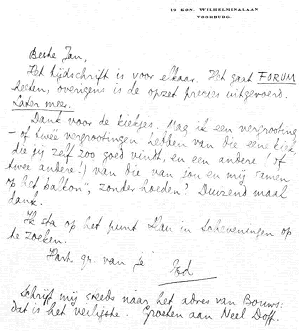 12 KON. WILHELMINALAAN
VOORBURG.
Beste Jan,
Het tijdschrift is voor elkaar. Het gaat FORUM
heeten, overigens is de opzet precies uitgevoerd.
Later meer.
Dank voor de kiekjes. Mag ik een vergrooting
- of twee vergrootingen hebben van die eene kiek
die jij zelf zoo goed vindt, en een andere (of
twee andere!) van die van jou en mij samen
op het balkon", zonder hoeden? Duizend maal
dank.
Ik sta op het punt Han in Scheveningen op
te zoeken.
Hart. gr. van je
Schrijf mij steeds naar het adres van Bouws:
dat is het veiligste. Groeten aan Neel Doff.